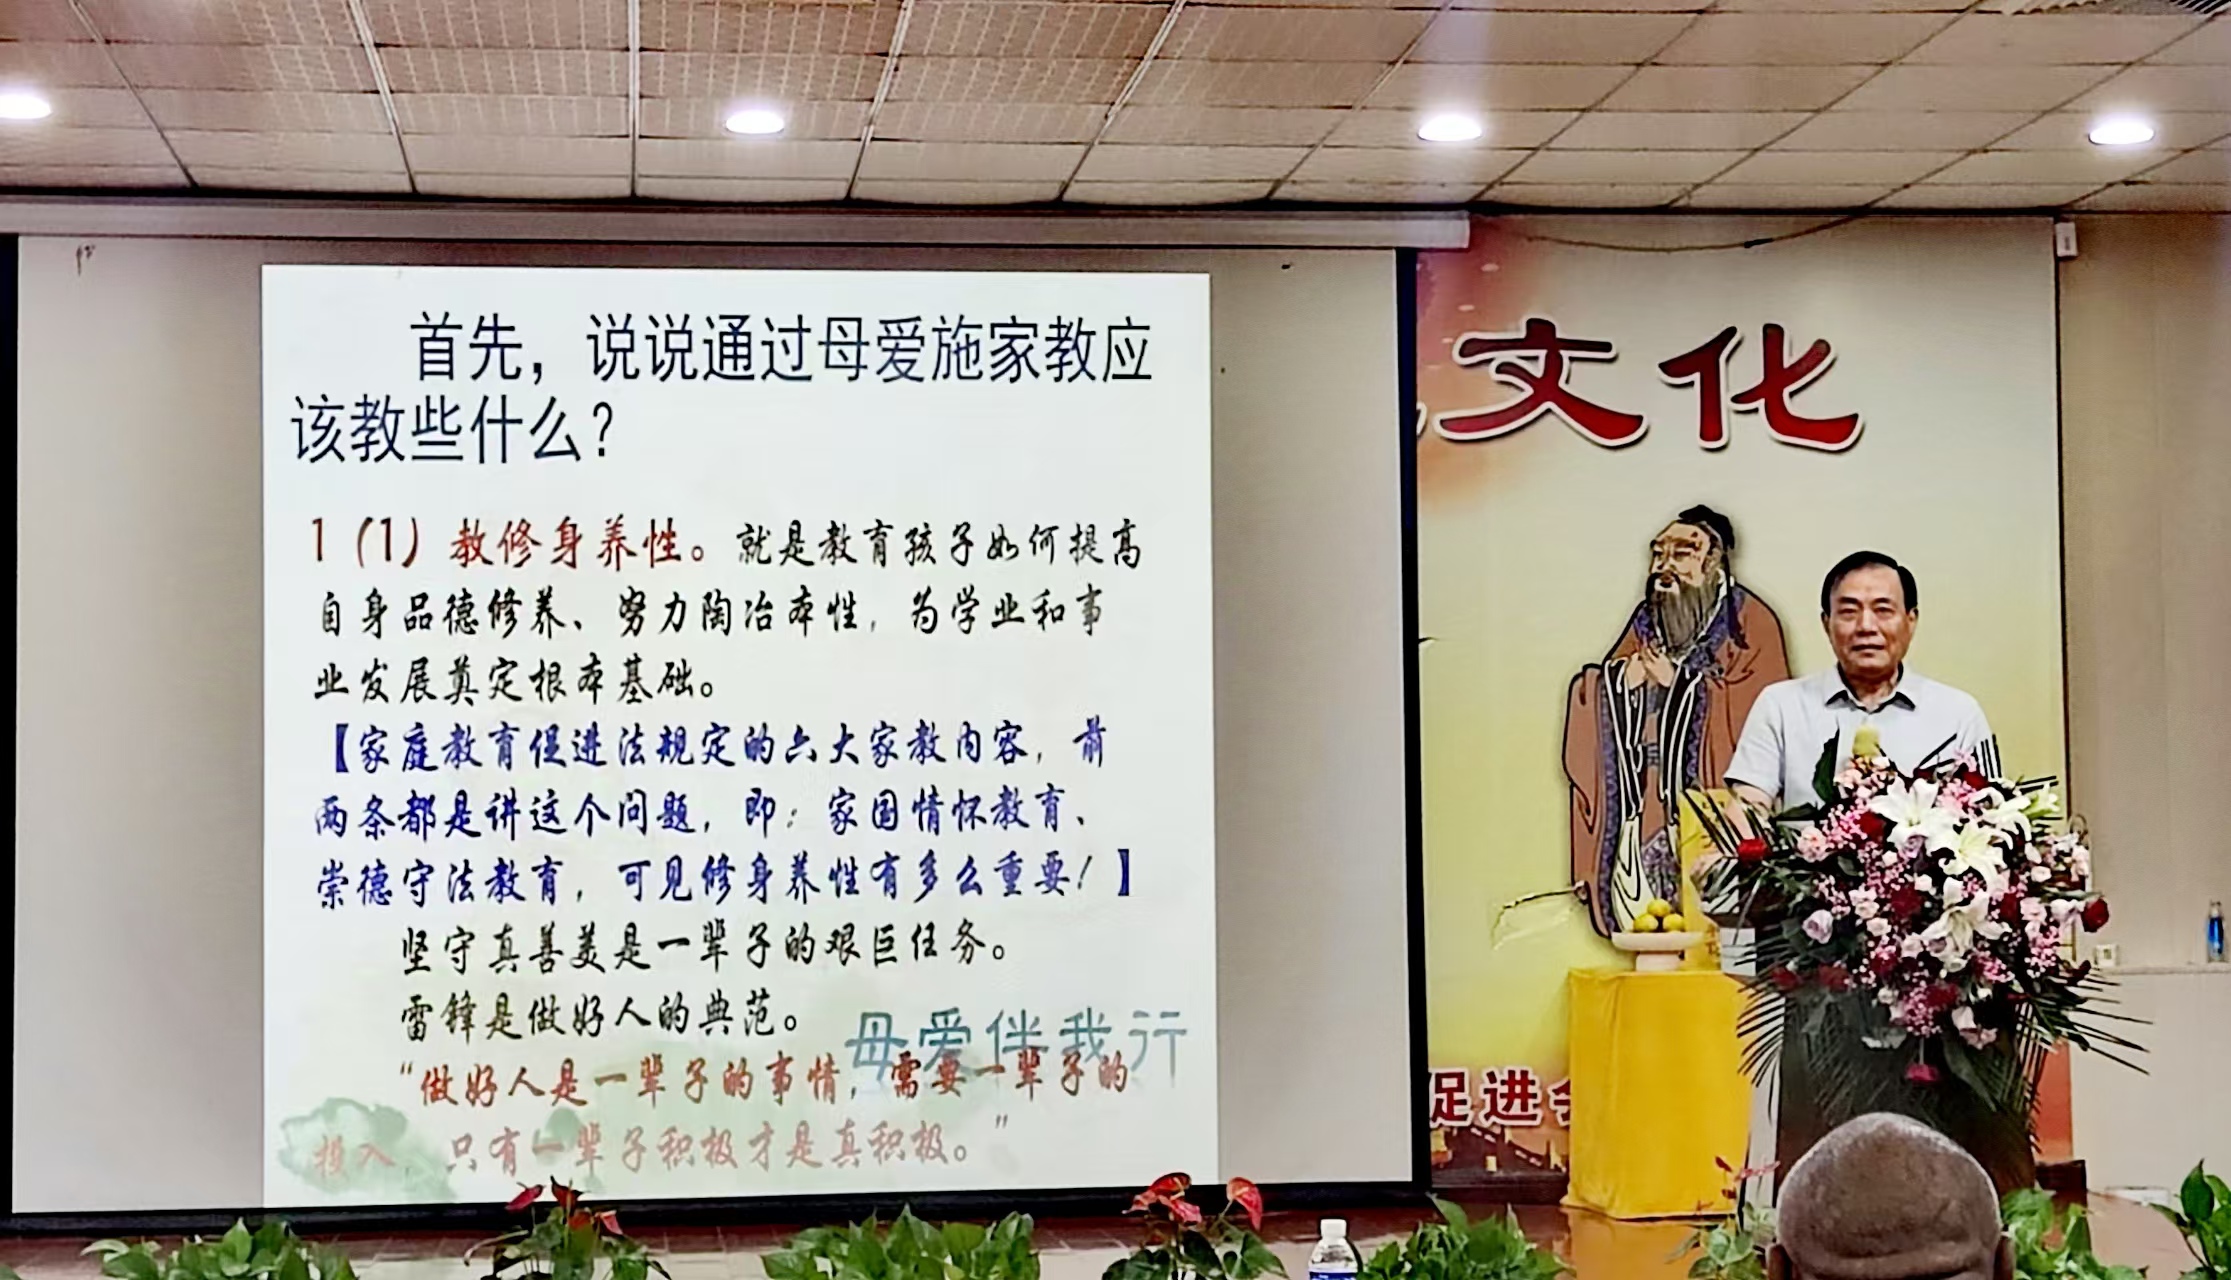 首先，说说通过母爱施家教应
该教些什么？
1（1）教修身养性。就是教育孩子如何提高
自身品德修养、努力陶冶本性，为学业和事
业发展奠定根本基础。
【家庭教育促进法规定的六大家教内容，前
两条都是讲这个问题，即：家国情怀教育、
崇德守法教育，可见修身养性有多么重要！】
坚守真善美是一辈子的艰巨任务。
雷锋是做好人的典范。
母爱伴我行
“做好人是一辈子的事情，需要一辈子的
投入，只有一辈子积极才是真积极。”
文化
促进会